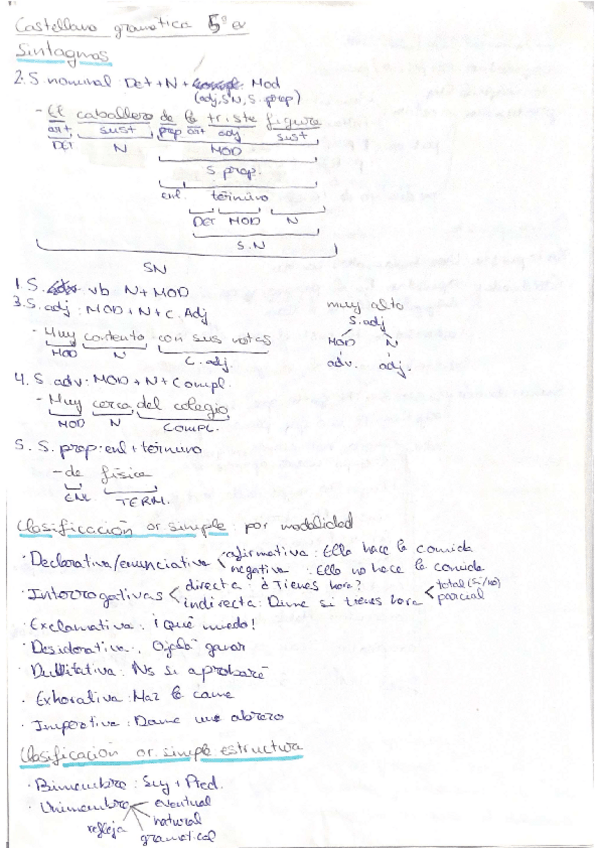 Castellano gramatica 5º ev
Sintagmas
2. S. nominal: Det + N + Mod
(adj, SN, S. prep)
- El caballero de la triste figura
art sust prep art adj sust
DET N MOD
S. prep.
enl. término
DET MOD N
S.N
SN
1. S. vb N + MOD
3. S. adj: MOD + N + C. Adj
muy alto
S. adj
- Muy contento con sus notas
MOD N
MOD N C. adj.
adv. adj.
4. S. adv: MOD + N + Compl.
- Muy cerca del colegio
MOD N COMPL.
5. S. prep: enl + término
- de física
ENL TERM.
Clasificación or simple: por modalidad
· Declarativa/enunciativa afirmativa: Ella hace la comida
negativa: Ella no hace la comida
· Interrogativas directa: ¿Tienes hora?
indirecta: Dime si tienes hora total (si/no)
parcial
· Exclamativa: ¡Qué miedo!
· Desiderativa: Ojalá ganar
· Dubitativa: Ns si aprobaré
· Exhorativa: Haz la cama
· Imperativa: Dame un abrazo
Clasificación or. simple estructura
· Bimembre: Suj + Pred.
· Unimembre eventual
natural
refleja gramatical